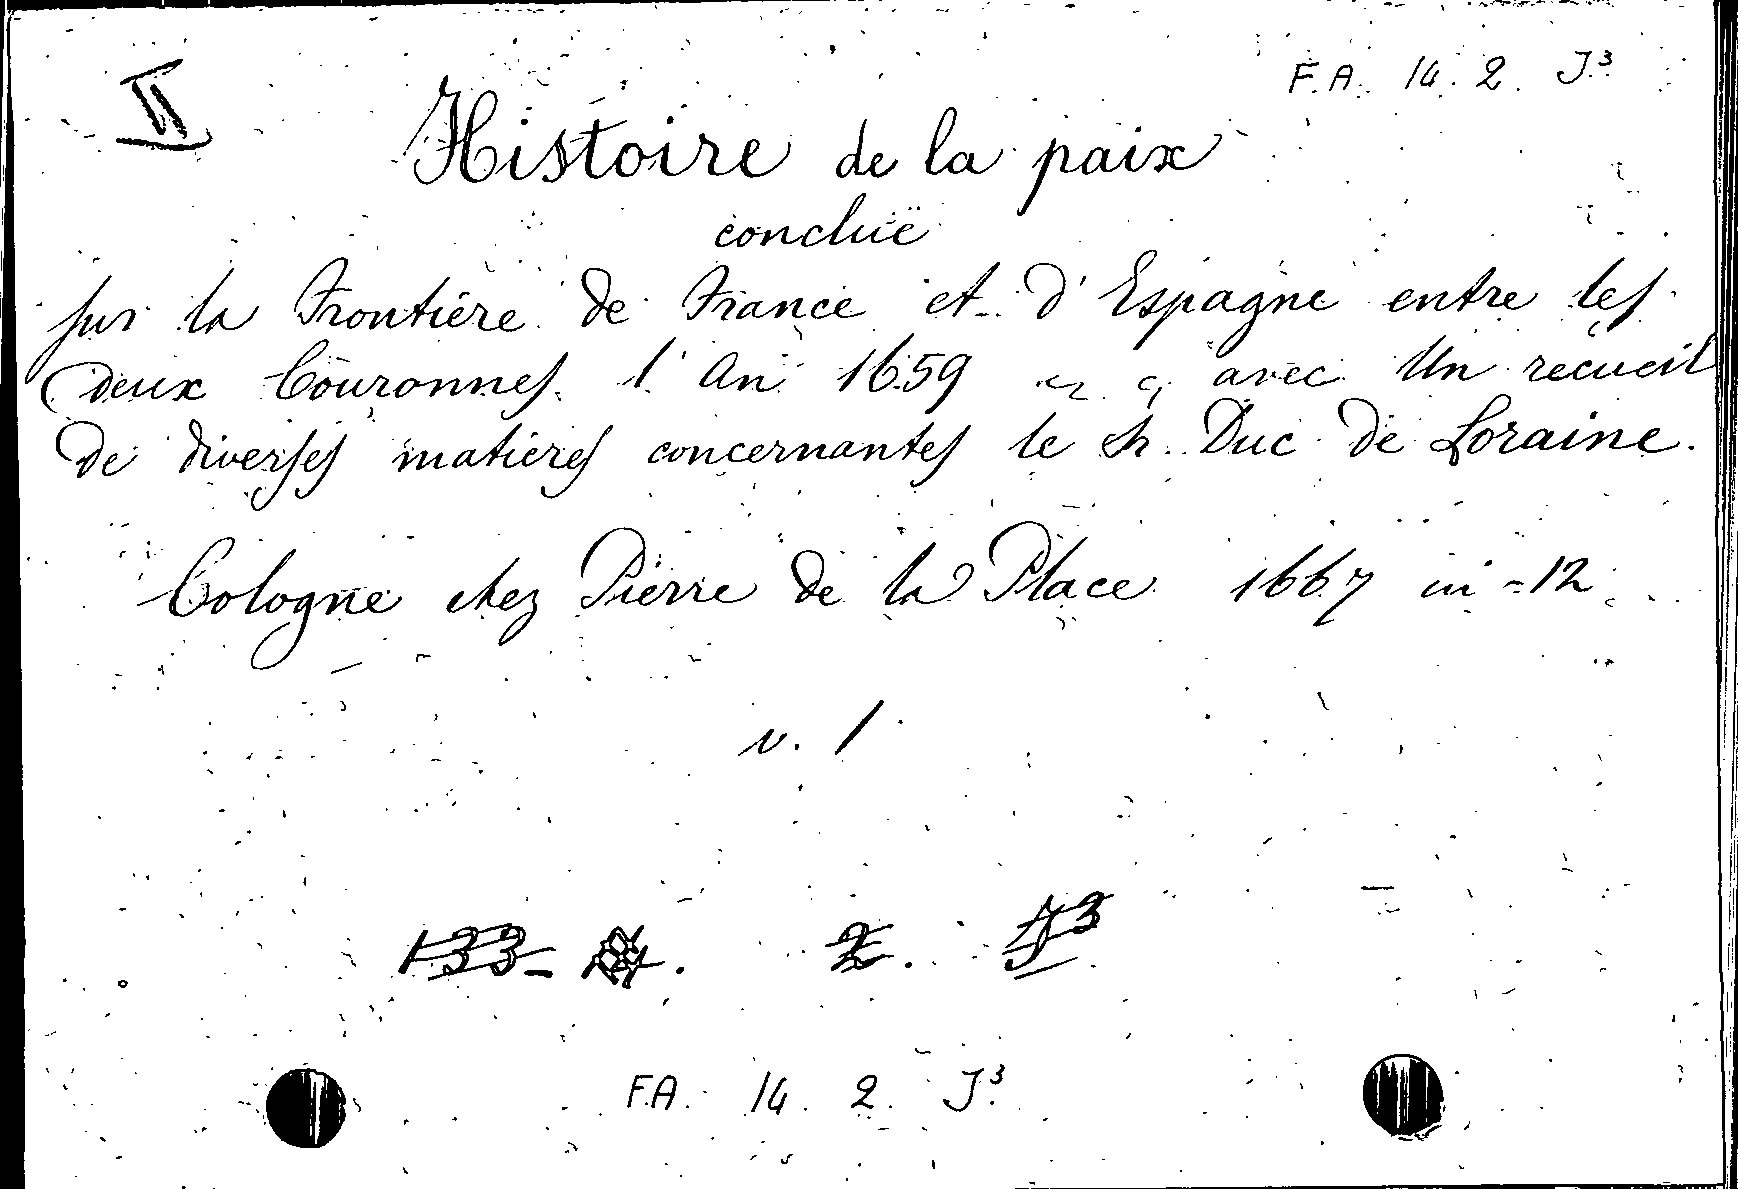 II
F.A. 14. 2. J³.
Histoire de la paix
concluë
sur la Frontiére de France et d'Espagne entre les
deux Couronnes. l'An 1659 avec Un recueil
de diverses matiéres concernantes le Duc de Loraine.
Cologne chez Pierre de la Place 1667 in-12
v. 1
133- 2. J³
F.A. 14. 2. J³.